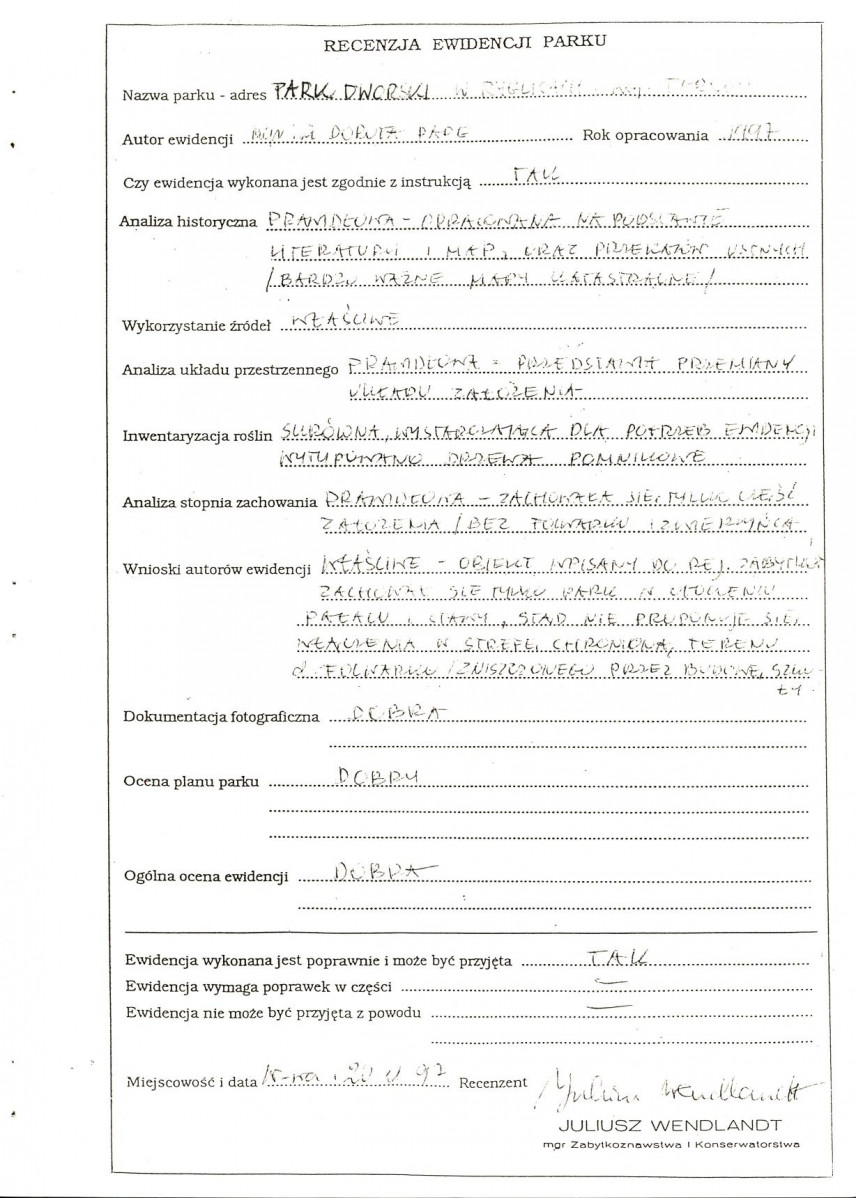 RECENZJA EWIDENCJI PARKU
Nazwa parku - adres PARK DWORSKI W RYGLICACH
Autor ewidencji DOROTA Rok opracowania 1997
Czy ewidencja wykonana jest zgodnie z instrukcją TAK
Analiza historyczna PRAWIDŁOWA - OPRACOWANA NA PODSTAWIE
LITERATURY I MAP, ORAZ PRZEKAZÓW USTNYCH
/BARDZO WAŻNE MAPY KATASTRALNE/
Wykorzystanie źródeł WŁAŚCIWE
Analiza układu przestrzennego PRAWIDŁOWA - PRZEDSTAWIA PRZEMIANY
UKŁADU ZAŁOŻENIA
Inwentaryzacja roślin WYSTARCZAJĄCA DLA POTRZEB EWIDENCJI
WYTYPOWANO DRZEWA POMNIKOWE
Analiza stopnia zachowania PRAWIDŁOWA - ZACHOWAŁA SIĘ TYLKO CZĘŚĆ
ZAŁOŻENIA /BEZ FOLWARKU I ZWIERZYŃCA
Wnioski autorów ewidencji WŁAŚCIWE - OBIEKT WPISANY DO REJ. ZABYTKÓW
ZACHOWAŁ SIĘ TYLKO PARK W OTOCZENIU
PAŁACU I , STĄD NIE PROPONUJE SIĘ
WŁĄCZENIA W STREFĘ CHRONIONĄ TERENU
d. FOLWARKU /ZNISZCZONEGO PRZEZ BUDOWĘ SZKO-
ŁY.
Dokumentacja fotograficzna DOBRA
Ocena planu parku DOBRY
Ogólna ocena ewidencji DOBRA
Ewidencja wykonana jest poprawnie i może być przyjęta TAK
Ewidencja wymaga poprawek w części —
Ewidencja nie może być przyjęta z powodu —
Miejscowość i data W-wa, 20 V 97 Recenzent Juliusz Wendlandt
JULIUSZ WENDLANDT
mgr Zabytkoznawstwa i Konserwatorstwa